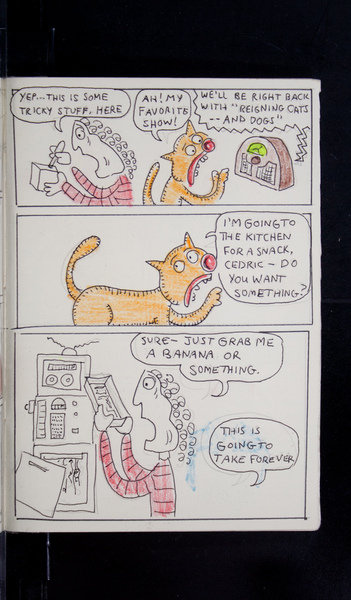 YEP...THIS IS SOME
TRICKY STUFF, HERE
AH! MY
FAVORITE
SHOW!
WE'LL BE RIGHT BACK
WITH "REIGNING CATS
-- AND DOGS"
I'M GOING TO
THE KITCHEN
FOR A SNACK,
CEDRIC - DO
YOU WANT
SOMETHING?
SURE - JUST GRAB ME
A BANANA OR
SOMETHING.
THIS IS
GOING TO
TAKE FOREVER